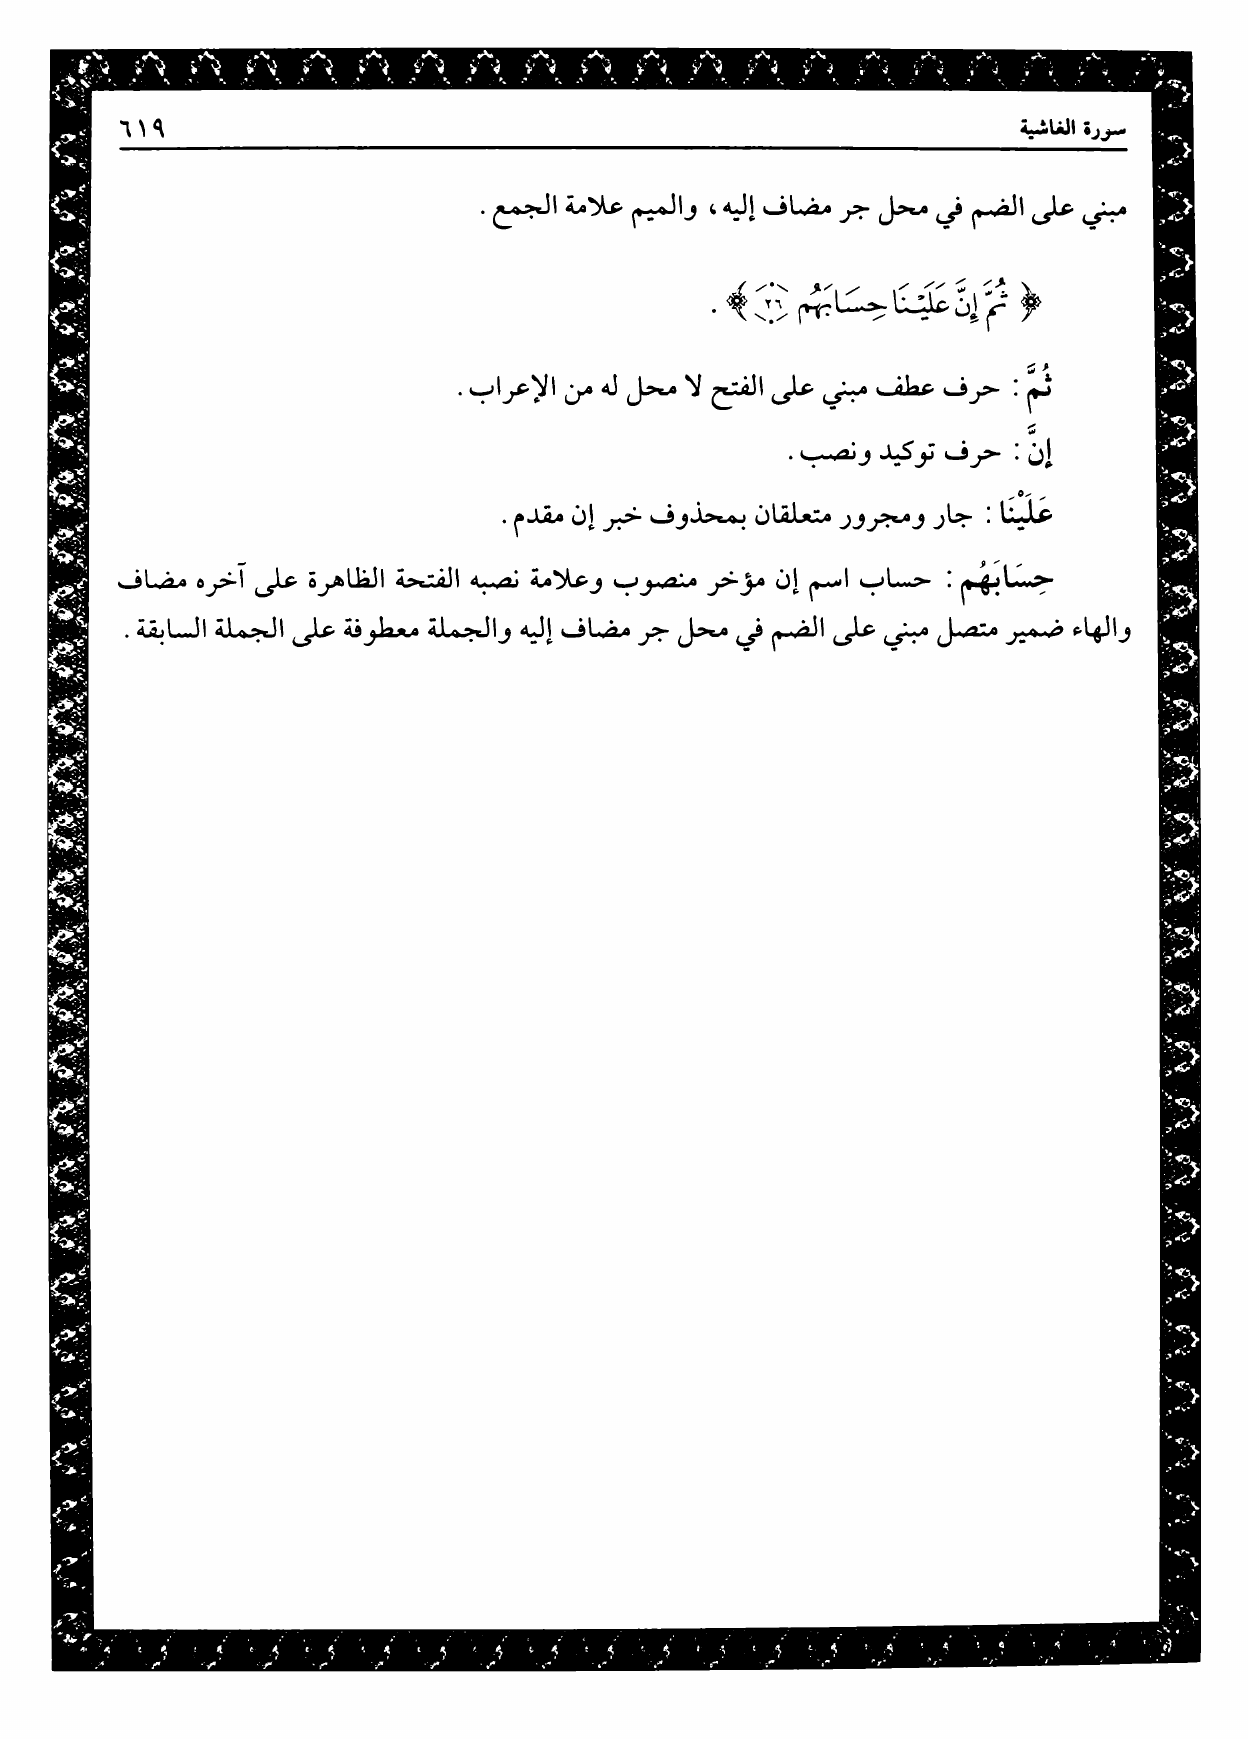 سورة الغاشية ٦١٩
مبني على الضم في محل جر مضاف إليه ، والميم علامة الجمع .
﴿ ثُمَّ إِنَّ عَلَيْنَا حِسَابَهُم ٢٦ ﴾ .
ثُمَّ : حرف عطف مبني على الفتح لا محل له من الإعراب .
إنَّ : حرف توكيد ونصب .
عَلَيْنَا : جار ومجرور متعلقان بمحذوف خبر إن مقدم .
حِسَابَهُم : حساب اسم إن مؤخر منصوب وعلامة نصبه الفتحة الظاهرة على آخره مضاف
والهاء ضمير متصل مبني على الضم في محل جر مضاف إليه والجملة معطوفة على الجملة السابقة .